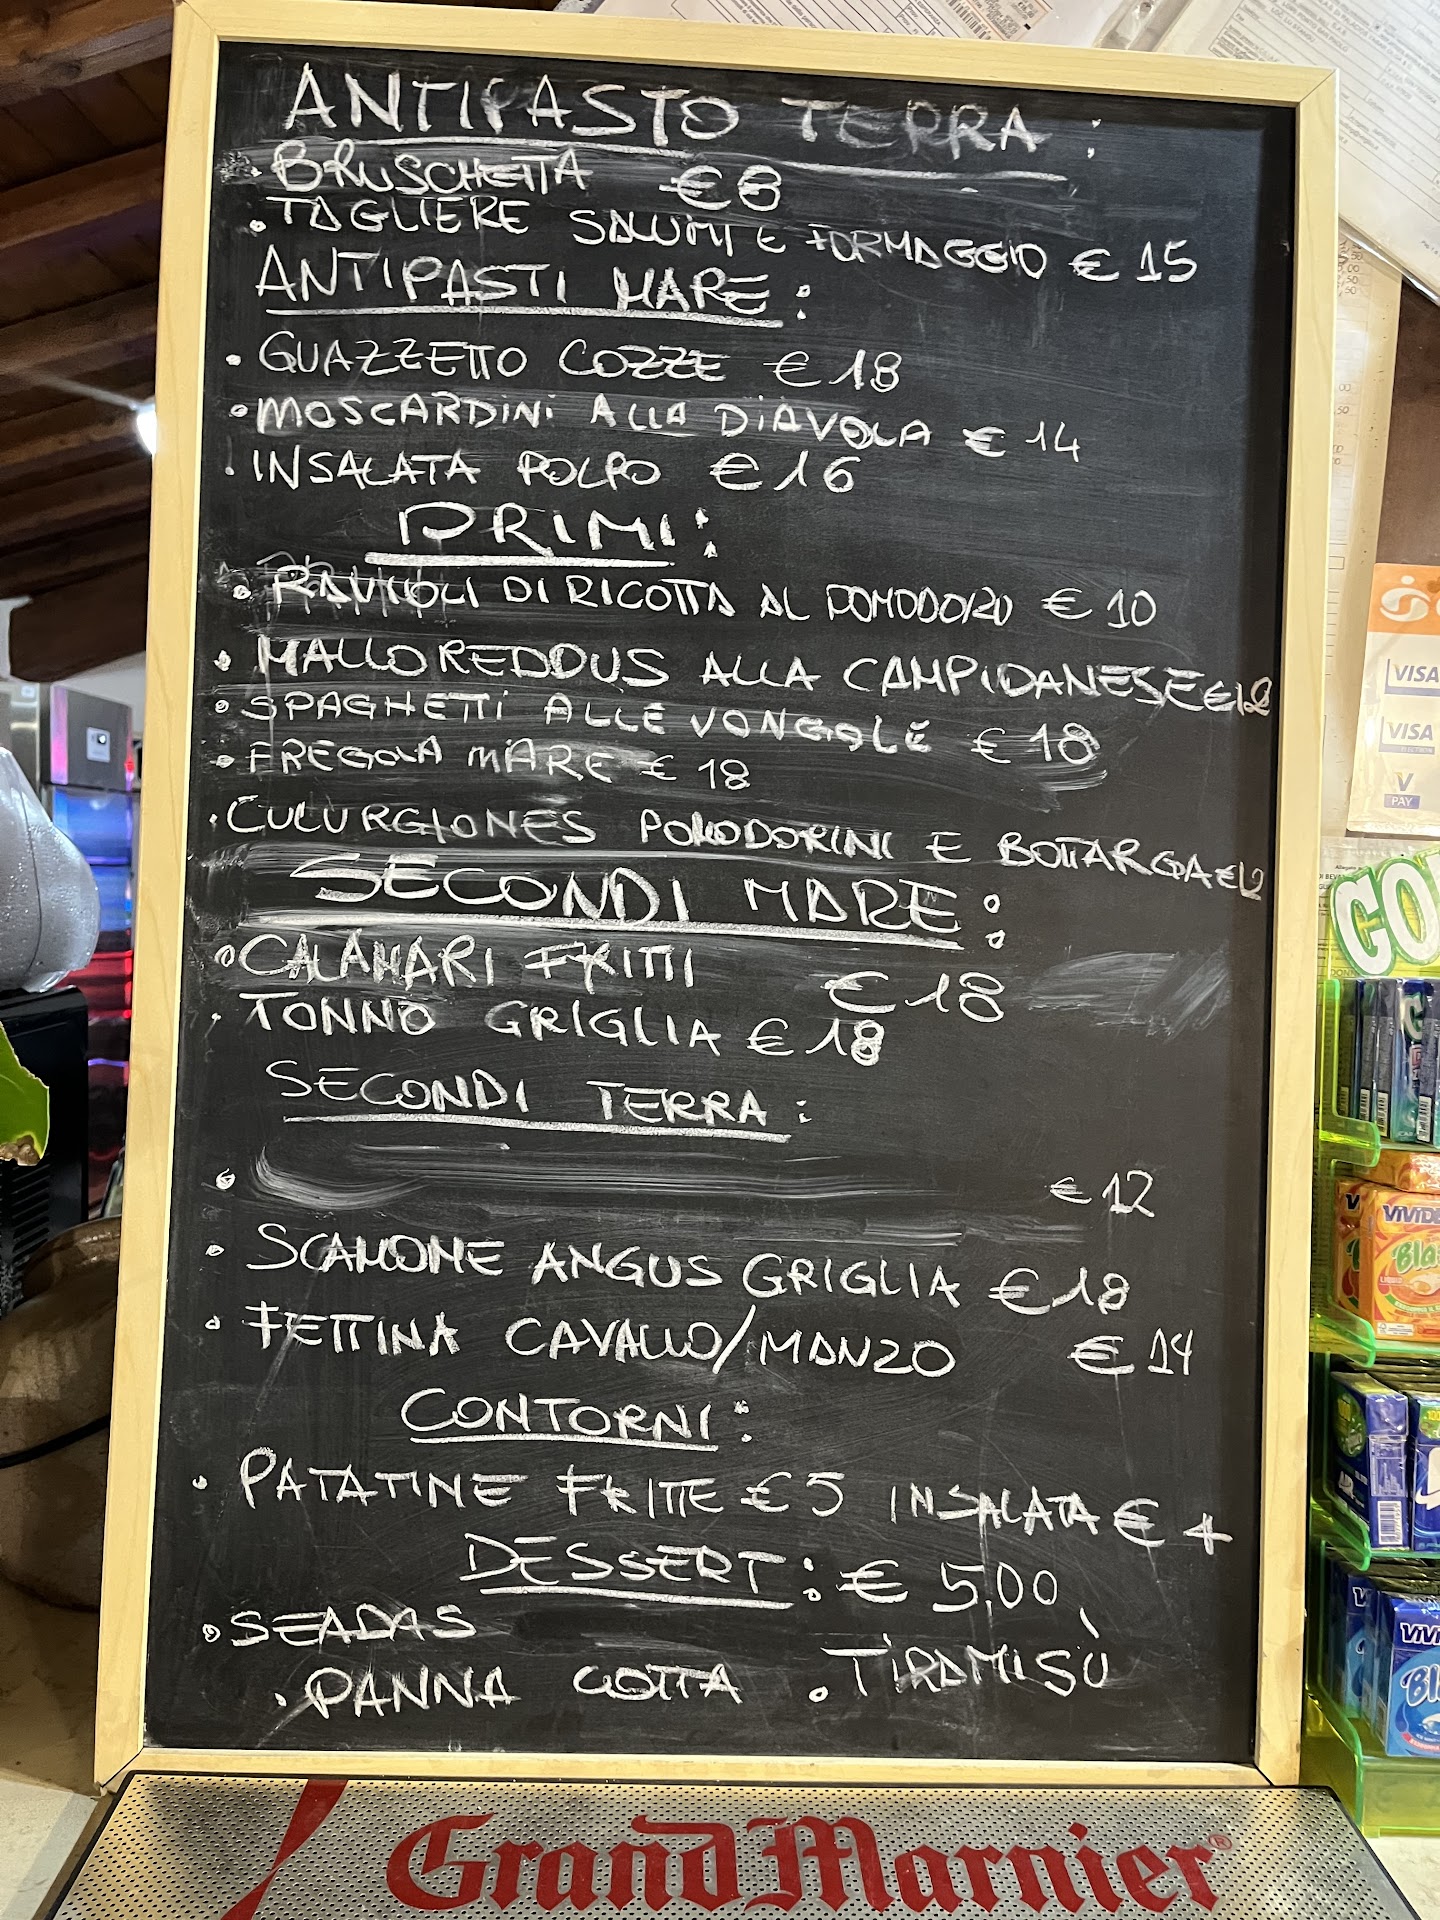 ANTIPASTO TERRA:
• BRUSCHETTA €8
• TAGLIERE SALUMI E FORMAGGIO €15
ANTIPASTI MARE:
• GUAZZETTO COZZE €18
• MOSCARDINI ALLA DIAVOLA €14
• INSALATA POLPO €16
PRIMI:
• RAVIOLI DI RICOTTA AL POMODORO €10
• MALLOREDDUS ALLA CAMPIDANESE €12
• SPAGHETTI ALLE VONGOLE €18
• FREGOLA MARE €18
• CULURGIONES POMODORINI E BOTTARGA €12
SECONDI MARE:
• CALAMARI FRITTI €18
• TONNO GRIGLIA €18
SECONDI TERRA:
• €12
• SCAMONE ANGUS GRIGLIA €18
• FETTINA CAVALLO/MANZO €14
CONTORNI:
• PATATINE FRITTE €5 INSALATA €4
DESSERT: € 5,00
• SEADAS
• PANNA COTTA • TIRAMISÙ
Grand Marnier®
VISA
VISA
V
PAY
GO
VIVIDE
Bla
VIVI
Bl